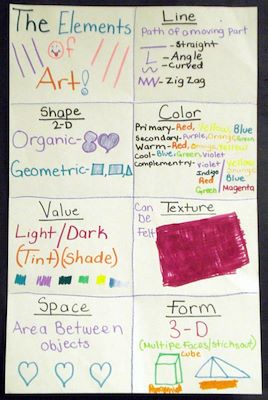 The Elements
Of
Art!
Line
Path of a moving part
Straight
Angle
Curved
Zig Zag
Shape
2-D
Organic-
Geometric-
Color
Primary-Red, Yellow, Blue
Secondary-Purple, Orange, Green
Warm-Red, Orange, Yellow
Cool-Blue, Green, Violet
Complementry-violet/yellow
Indigo/orange
Red/Blue
Green/Magenta
Value
Light/Dark
(Tint)(Shade)
Texture
Can
Be
Felt
Space
Area Between
Objects
Form
3-D
(Multiple Faces/Sticks out)
Cube